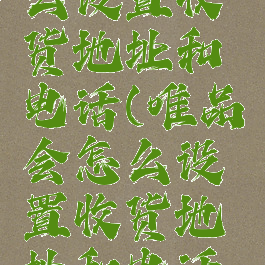 会设置收
货地址和
电话(唯品
会怎么设
置收货地
址和电话